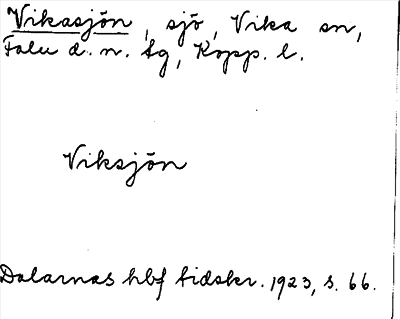 Vikasjön, sjö, Vika sn,
Falu d. n. tg, Kopp. l.
Viksjön
Dalarnas hbf tidskr. 1923, s. 66.